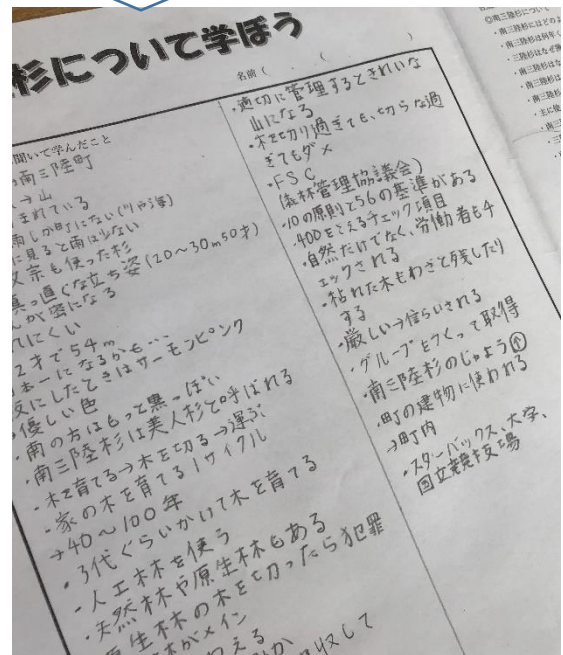 杉について学ぼう
名前(　　　(　　　)
聞いて学んだこと
南三陸町
→山
まれている
雨しか町にない(川や海)
に見ると雨は少ない
も使った杉
真っ直ぐな立ち姿(20〜30m50才)
んが密になる
てにくい
2才で54m
になるかも…
にしたときはサーモンピンク
優しい色
・南の方はもっと黒っぽい
・南三陸杉は美人杉と呼ばれる
・木を育てる→木を切る→運ぶ
・家の木を育てる1サイクル
→40〜100年
・3代ぐらいかいて木を育てる
・人工林を使う
・天然林や原生林もある
原生林の木を切ったら犯罪
がメイン
・適切に管理するときれいな
山になる
・木を切り過ぎても、切らな過
ぎてもダメ
・FSC
(森林管理協議会)
・10の原則と56の基準がある
・400をこえるチェック項目
・自然だけでなく、労働者もチ
ェックされる
・枯れた木もわざと残したり
する
・厳しい→信らいされる
・グループをつくって取得
・南三陸杉のじゅよう↑
・町の建物に使われる
→町内
・スターバックス、大学、
国立競技場